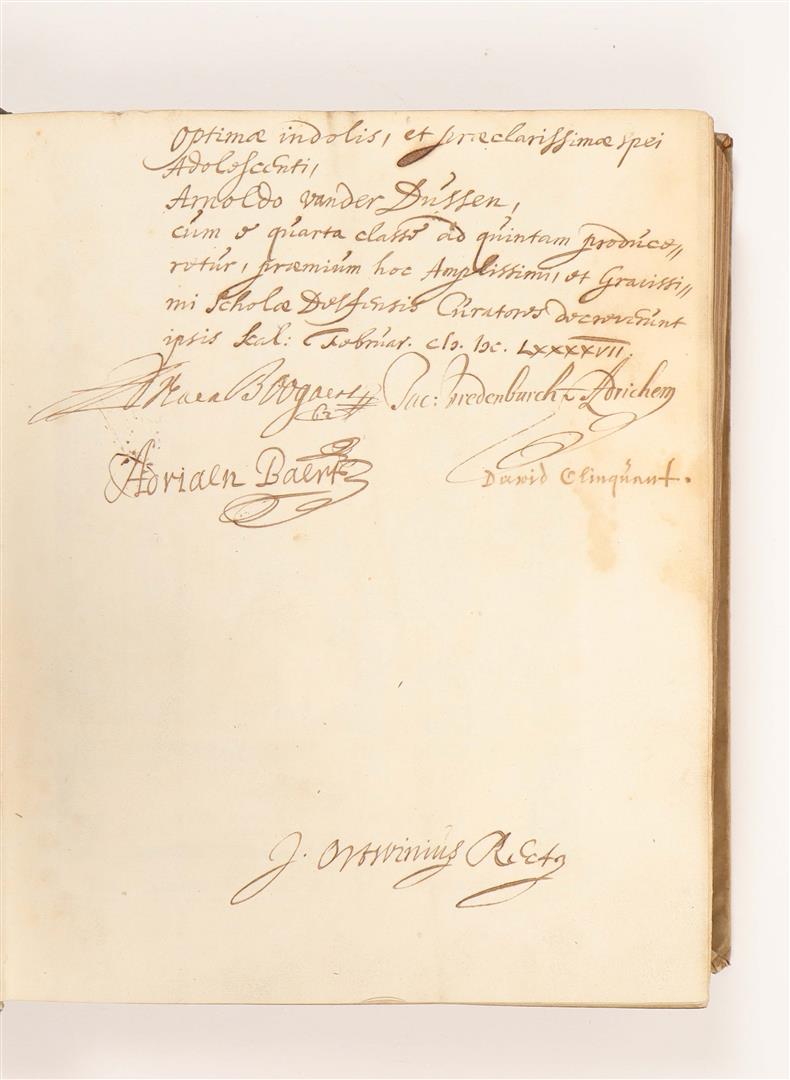 Optimæ indolis, et præclarissimæ spei
Adolescenti,
Arnoldo vander Dussen,
cum e quarta classe ad quintam produce„
retur, præmium hoc Amplissimi, et Gravissi„
mi Scholæ Delfensis Curatores decreverunt
ipsis Kal: Februar. cIɔ. Iɔc. LXXXXVII.
Boogaert Jac: Vredenburch Adrichem
Adriaen Baert David Elinquant.
J. Ortwinius Rector